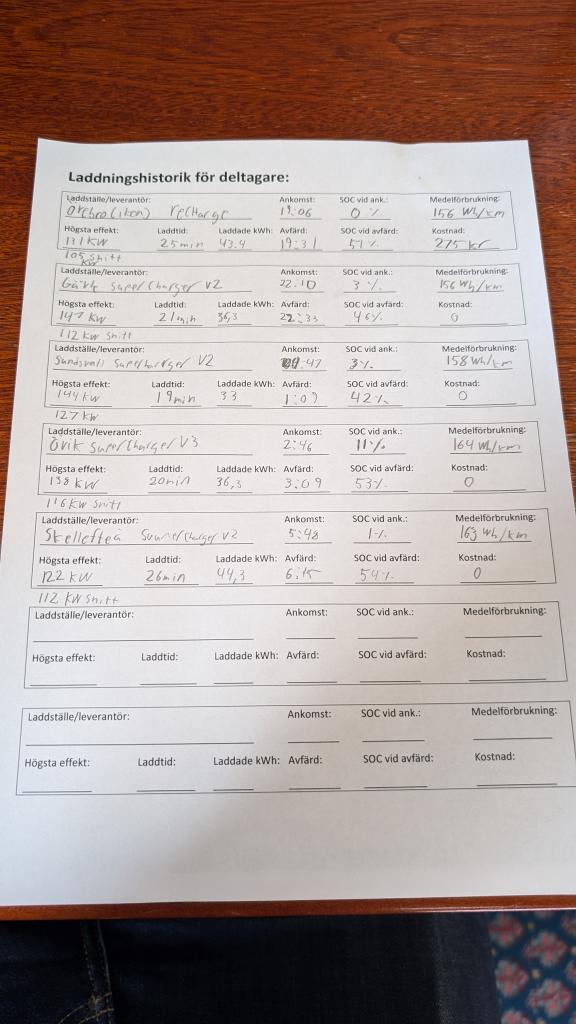 Laddningshistorik för deltagare:
Laddställe/leverantör: Ankomst: SOC vid ank.: Medelförbrukning:
Örebro (iken) recharge 19:06 0 % 156 Wh/km
Högsta effekt: Laddtid: Laddade kWh: Avfärd: SOC vid avfärd: Kostnad:
131 kW 25 min 43.9 19:31 51 % 275 kr
105 snitt
kW
Laddställe/leverantör: Ankomst: SOC vid ank.: Medelförbrukning:
Gävle SuperCharger V2 22:10 3 % 156 Wh/km
Högsta effekt: Laddtid: Laddade kWh: Avfärd: SOC vid avfärd: Kostnad:
147 kW 21 min 36,3 22:33 46% 0
112 kW snitt
Laddställe/leverantör: Ankomst: SOC vid ank.: Medelförbrukning:
Sundsvall SuperCharger V2 :47 3% 158 Wh/km
Högsta effekt: Laddtid: Laddade kWh: Avfärd: SOC vid avfärd: Kostnad:
144 kW 19 min 33 1:09 42% 0
127 kW
Laddställe/leverantör: Ankomst: SOC vid ank.: Medelförbrukning:
Övik SuperCharger V3 2:46 11% 164 Wh/km
Högsta effekt: Laddtid: Laddade kWh: Avfärd: SOC vid avfärd: Kostnad:
138 kW 20min 36,3 3:09 53% 0
116 kW Snitt
Laddställe/leverantör: Ankomst: SOC vid ank.: Medelförbrukning:
Skellefteå SuperCharger V2 5:48 1% 163 Wh/km
Högsta effekt: Laddtid: Laddade kWh: Avfärd: SOC vid avfärd: Kostnad:
122 kW 26min 44,3 6:15 54% 0
112 kW snitt
Laddställe/leverantör: Ankomst: SOC vid ank.: Medelförbrukning:
Högsta effekt: Laddtid: Laddade kWh: Avfärd: SOC vid avfärd: Kostnad:
Laddställe/leverantör: Ankomst: SOC vid ank.: Medelförbrukning:
Högsta effekt: Laddtid: Laddade kWh: Avfärd: SOC vid avfärd: Kostnad: